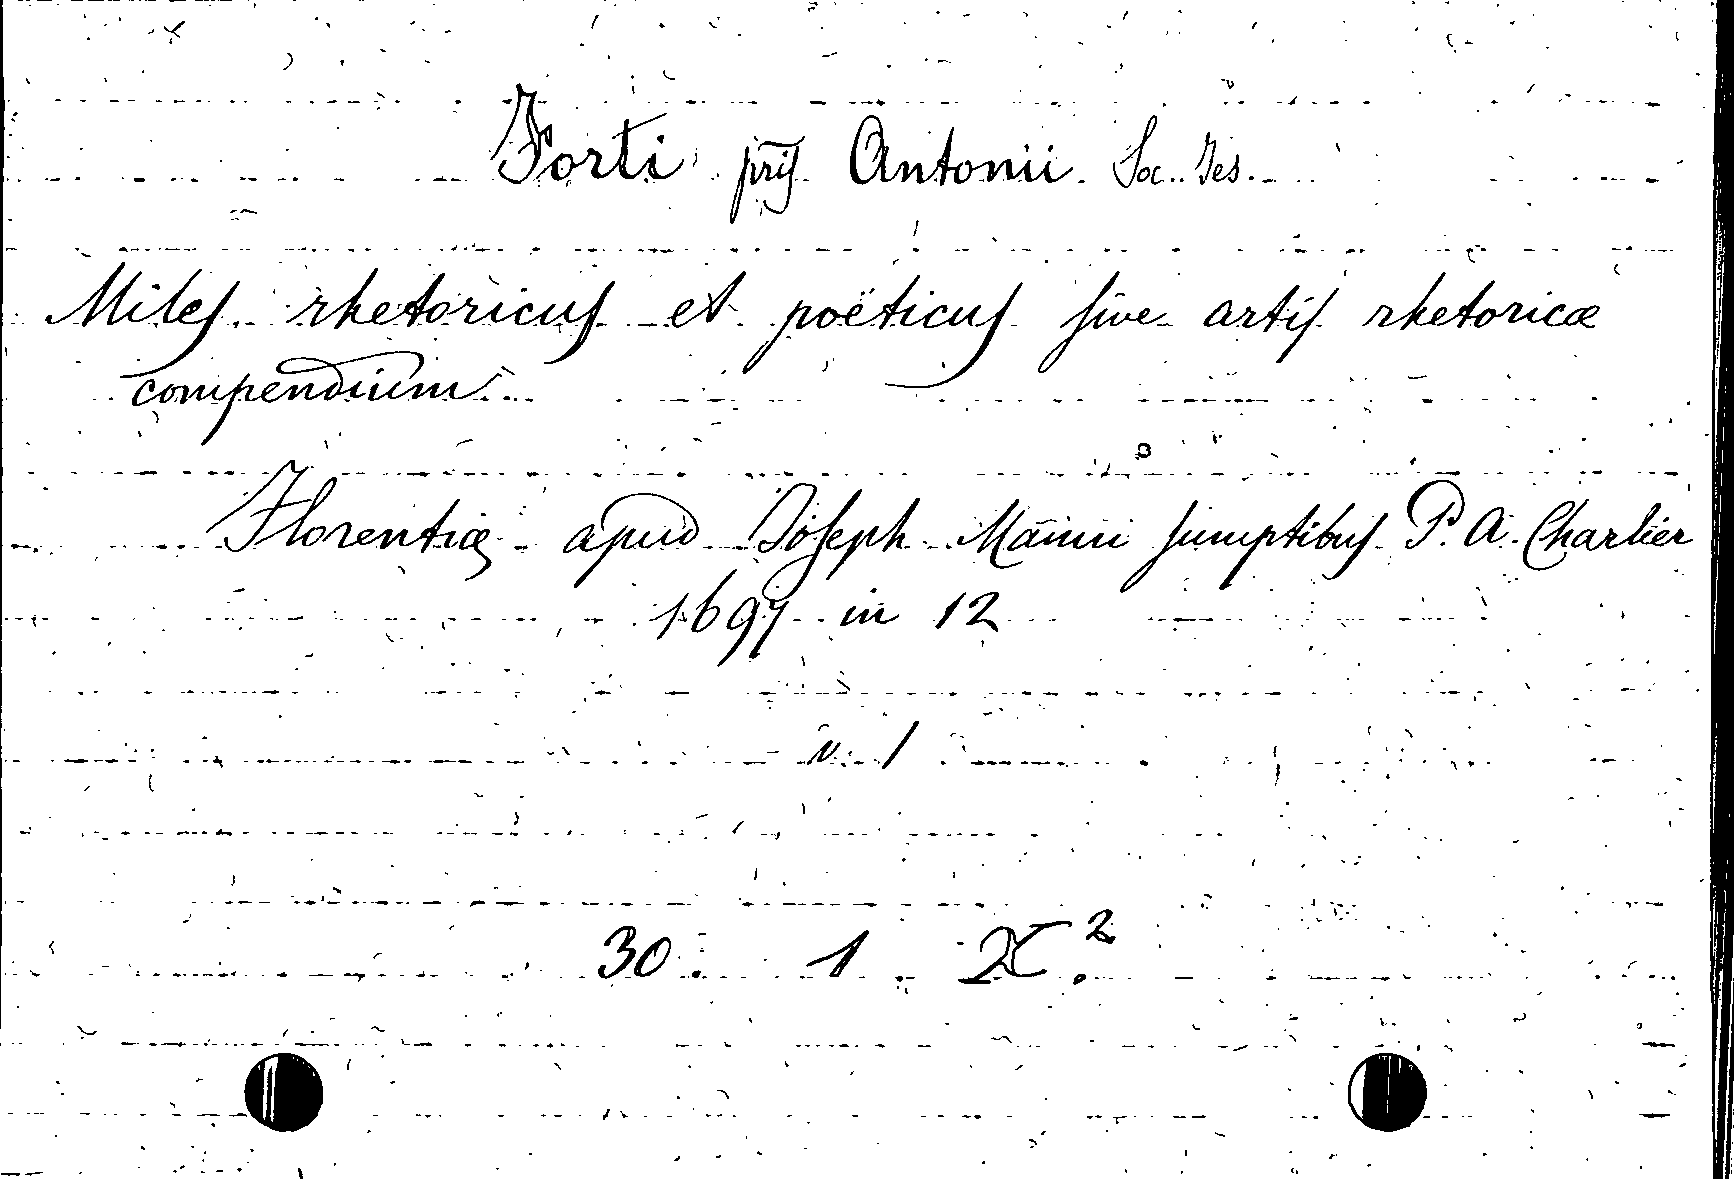 Forti prij Antonii Soc. Jes.
Miles rhetoricus et poëticus sive artis rhetoricæ
compendium.
Florentiæ apud Joseph Manni sumptibus P. A. Charlier
1697 in 12
v. 1
30. 1. X.²